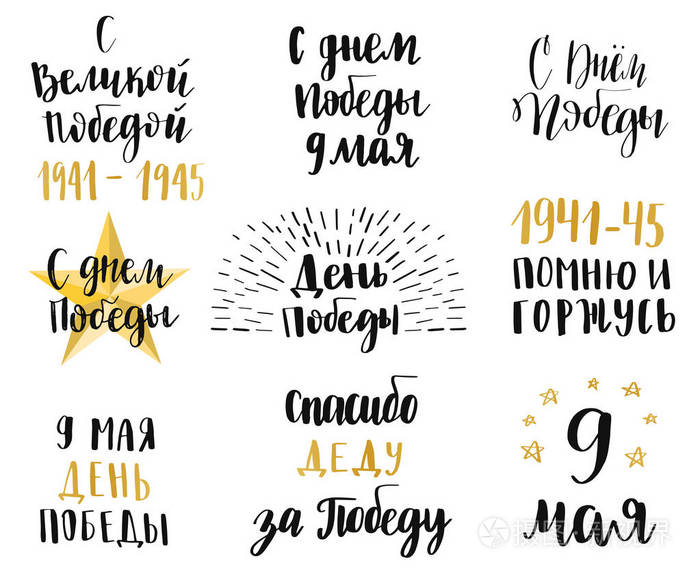 С
Великой
Победой
1941 - 1945
С днем
Победы
9 мая
С Днём
Победы
С днем
Победы
День
Победы
1941-45
ПОМНЮ И
ГОРЖУСЬ
9 МАЯ
ДЕНЬ
ПОБЕДЫ
Спасибо
ДЕДУ
за Победу
9
мая
摄图·新视界